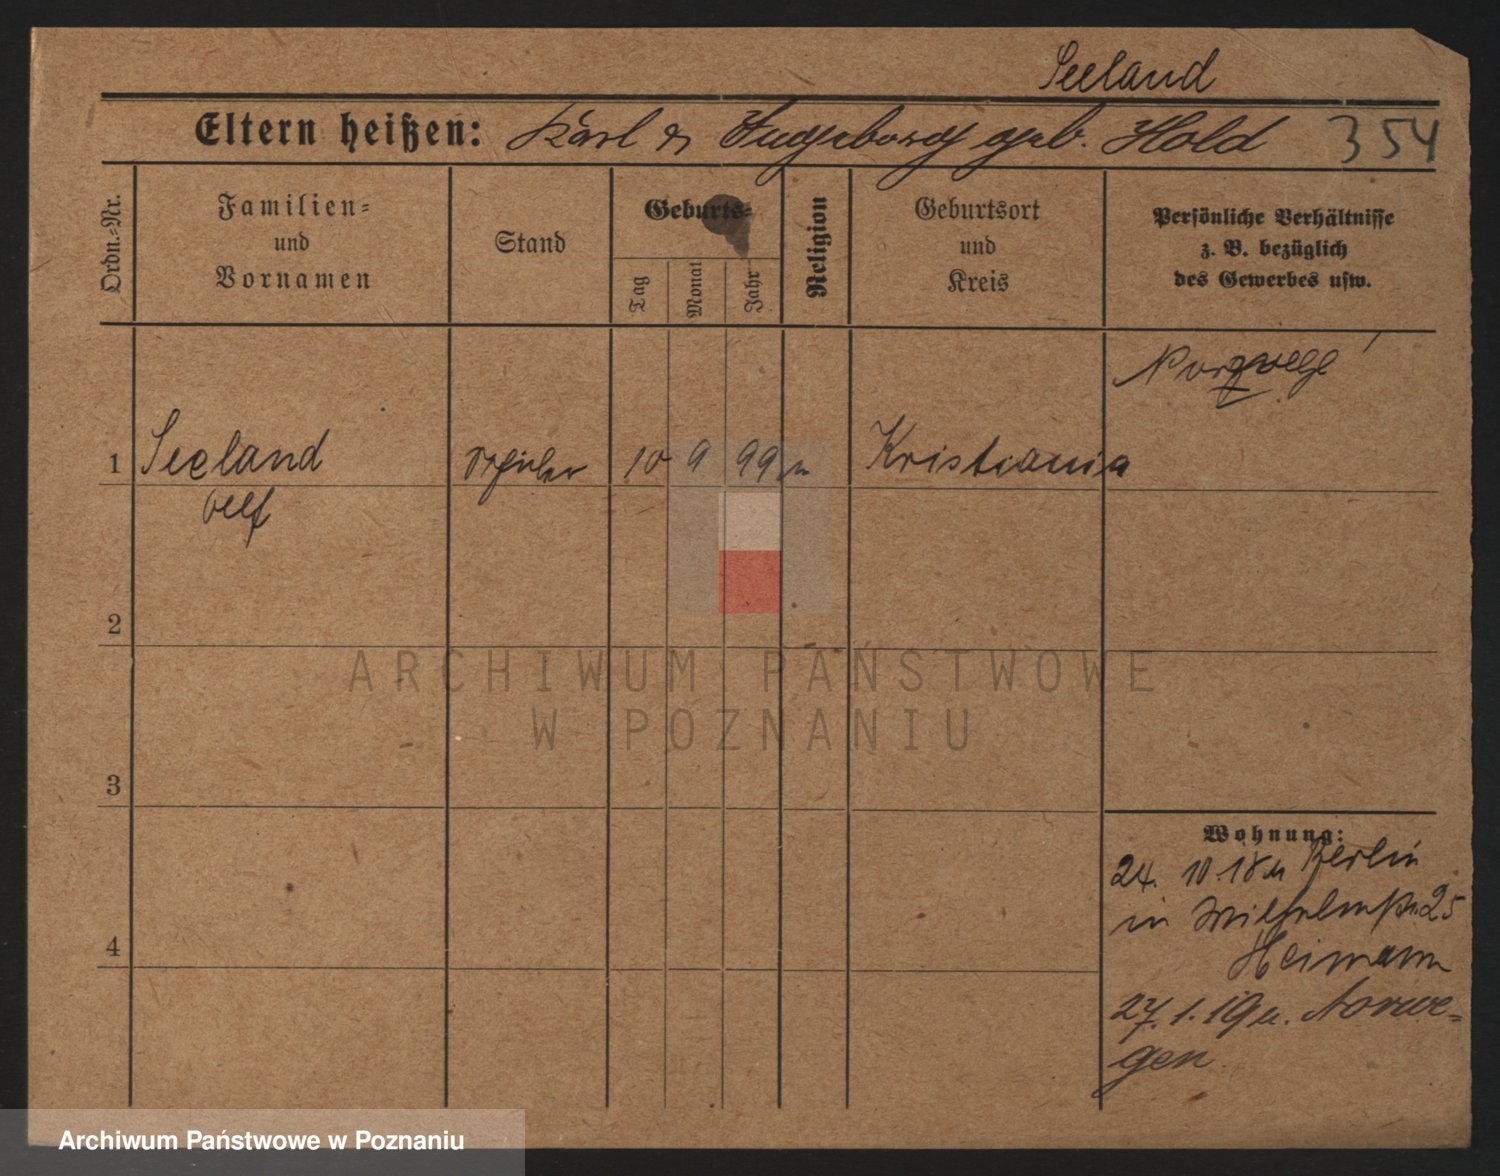 Seeland
Eltern heißen: Karl & Ingeborg geb. Hold 354
Ordn.-Nr.
Familien-
und
Vornamen
Stand
Geburts-
Tag
Monat
Jahr
Religion
Geburtsort
und
Kreis
Persönliche Verhältnisse
z. B. bezüglich
des Gewerbes usw.
1 Seeland 10 9 99 Kristiania
2
3
4
Wohnung:
24. 10. 18 Berlin
in Wilhelmstr. 25
Heimann
27. 1. 19 n. Norwe-
gen
ARCHIWUM PAŃSTWOWE
W POZNANIU
Archiwum Państwowe w Poznaniu